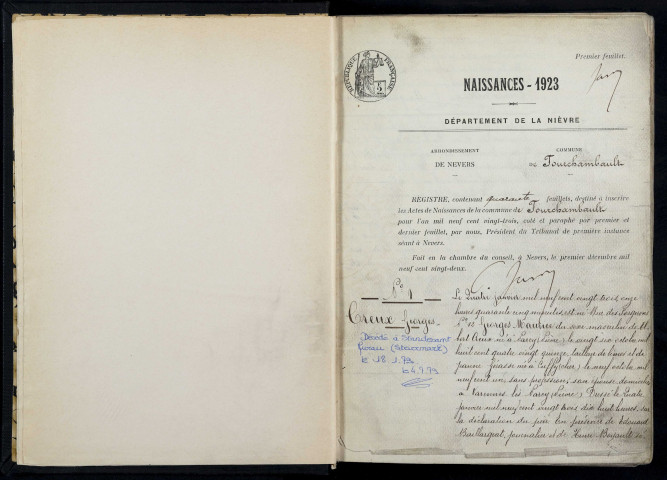 Premier feuillet.
RÉPUBLIQUE FRANÇAISE
NAISSANCES - 1923
DÉPARTEMENT DE LA NIÈVRE
ARRONDISSEMENT
DE NEVERS
COMMUNE
DE Fourchambault
REGISTRE, contenant quarante feuillets, destiné à inscrire
les Actes de Naissances de la commune de Fourchambault
pour l'an mil neuf cent vingt-trois, coté et paraphé par premier et
dernier feuillet, par nous, Président du Tribunal de première instance
séant à Nevers.
Fait en la chambre du conseil, à Nevers, le premier décembre mil
neuf cent vingt-deux.
N° 1
Creux Georges
Décédé à
le 18.1.79
le 4.9.79
Le quatre janvier mil neuf cent vingt trois onze
heures quarante cinq minutes est né Rue des
Georges Maurice du sexe masculin de
Creux né à le vingt octobre mil
huit cent quatre vingt quinze, et de
Jeanne née à Cuffy (Cher) le neuf octobre mil
neuf cent un, sans profession, son épouse domiciliés
à Varennes les Dressé le quatre
janvier mil neuf cent vingt trois dix huit heures sur
la déclaration du père En présence de Edouard
journalier et de Henri